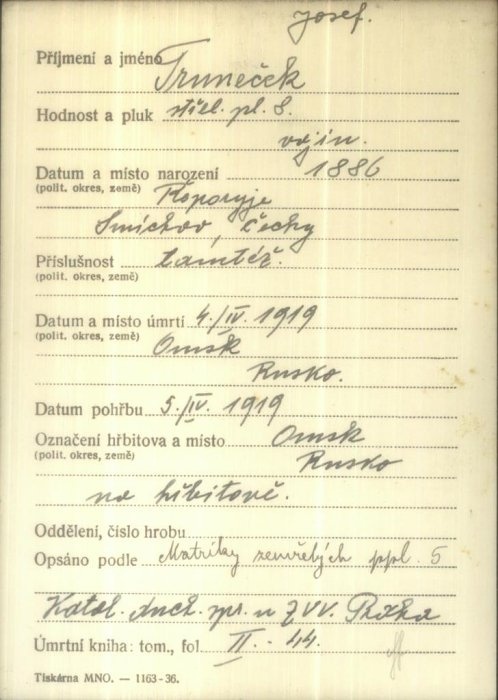 Josef.
Příjmení a jméno Truneček
Hodnost a pluk střel. pl. 8.
vojín.
Datum a místo narození 1886
(polit. okres, země) Řeporyje
Smíchov, Čechy
Příslušnost tamtéž.
(polit. okres, země)
Datum a místo úmrtí 4./IV. 1919
(polit. okres, země) Omsk
Rusko.
Datum pohřbu 5./IV. 1919
Označení hřbitova a místo Omsk
(polit. okres, země) Rusko
na hřbitově.
Oddělení, číslo hrobu
Opsáno podle Matriky zemřelých ppl. 5
Katol. duch. spr. u ZVV. Praha
Úmrtní kniha: tom., fol. II. - 44.
Tiskárna MNO. — 1163-36.